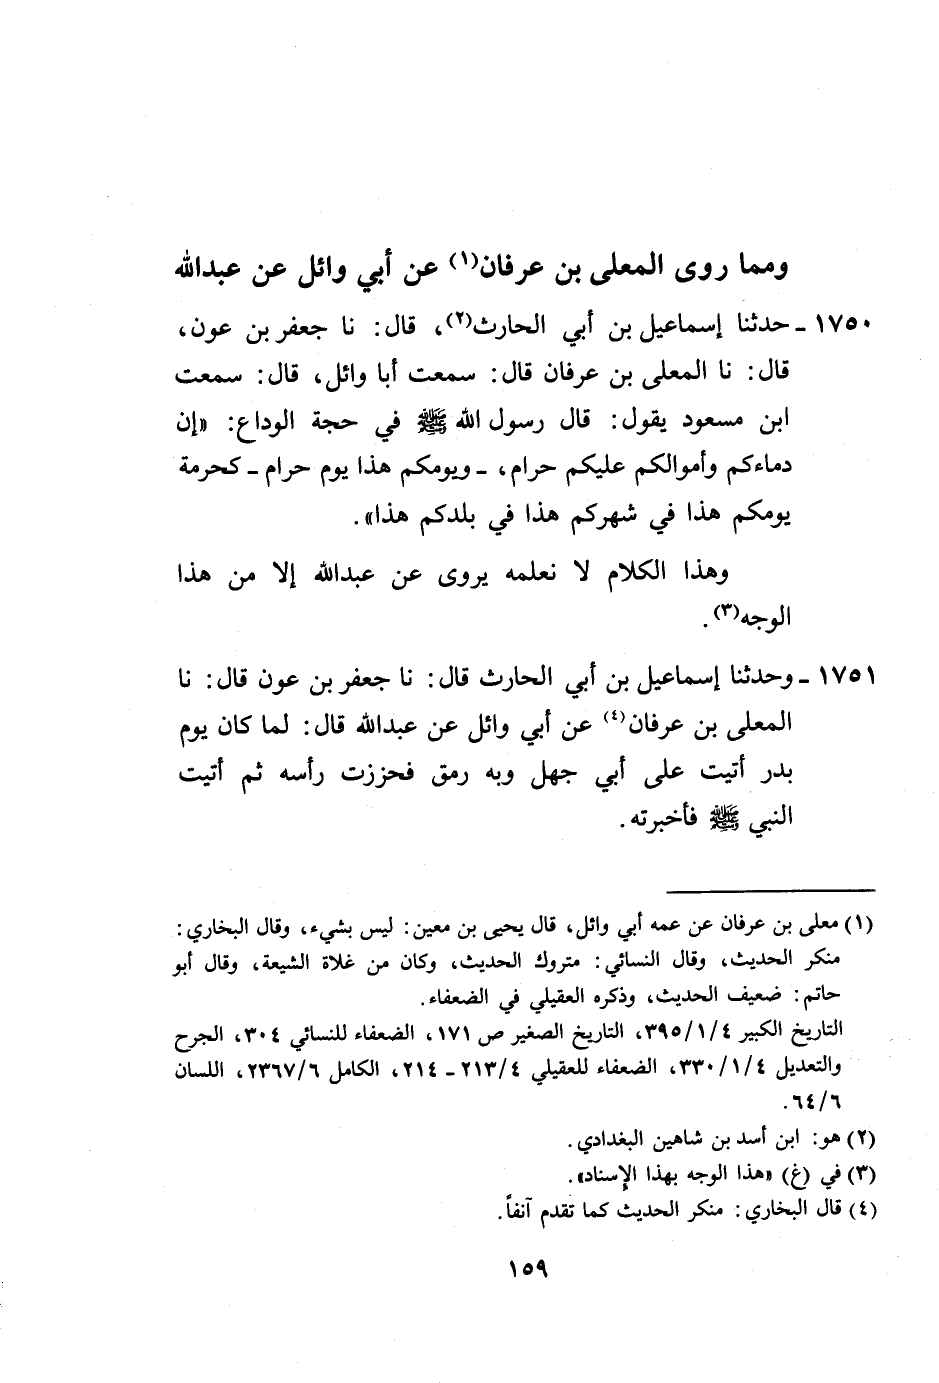 ومما روى المعلى بن عرفان(١) عن أبي وائل عن عبدالله
١٧٥٠ ـ حدثنا إسماعيل بن أبي الحارث(٢)، قال: نا جعفر بن عون،
قال: نا المعلى بن عرفان قال: سمعت أبا وائل، قال: سمعت
ابن مسعود يقول: قال رسول الله ﷺ في حجة الوداع: «إن
دماءكم وأموالكم عليكم حرام، ـ ويومكم هذا يوم حرام ـ كحرمة
يومكم هذا في شهركم هذا في بلدكم هذا».
وهذا الكلام لا نعلمه يروى عن عبدالله إلا من هذا
الوجه(٣).
١٧٥١ ـ وحدثنا إسماعيل بن أبي الحارث قال: نا جعفر بن عون قال: نا
المعلى بن عرفان(٤) عن أبي وائل عن عبدالله قال: لما كان يوم
بدر أتيت على أبي جهل وبه رمق فحززت رأسه ثم أتيت
النبي ﷺ فأخبرته.
(١) معلى بن عرفان عن عمه أبي وائل، قال يحيى بن معين: ليس بشيء، وقال البخاري:
منكر الحديث، وقال النسائي: متروك الحديث، وكان من غلاة الشيعة، وقال أبو
حاتم: ضعيف الحديث، وذكره العقيلي في الضعفاء.
التاريخ الكبير ٣٩٥/١/٤، التاريخ الصغير ص ١٧١، الضعفاء للنسائي ٣٠٤، الجرح
والتعديل ٣٣٠/١/٤، الضعفاء للعقيلي ٢١٣/٤ ـ ٢١٤، الكامل ٢٣٦٧/٦، اللسان
٦٤/٦.
(٢) هو: ابن أسد بن شاهين البغدادي.
(٣) في (غ) «هذا الوجه بهذا الإسناد».
(٤) قال البخاري: منكر الحديث كما تقدم آنفاً.
١٥٩